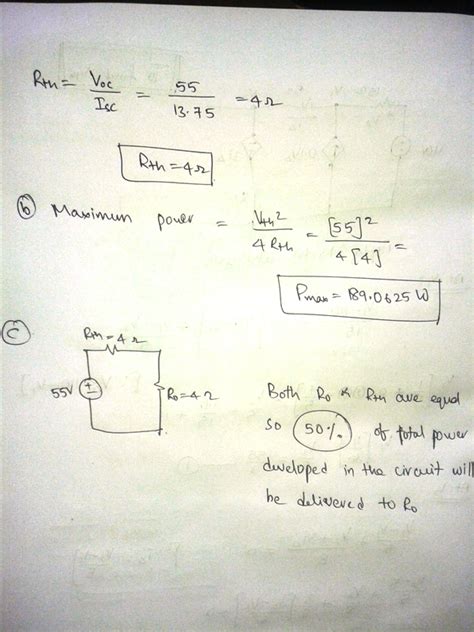 Rth = Voc / Isc = 55 / 13.75 = 4Ω
Rth = 4Ω
(b) Maximum power = Vth² / 4 Rth = [55]² / 4[4] =
Pmax = 189.0625 W
(c)
Rth = 4Ω
55V
+
-
Ro = 4Ω
Both Ro & Rth are equal
so 50% of total power
dweloped in the circuit will
be delivered to Ro